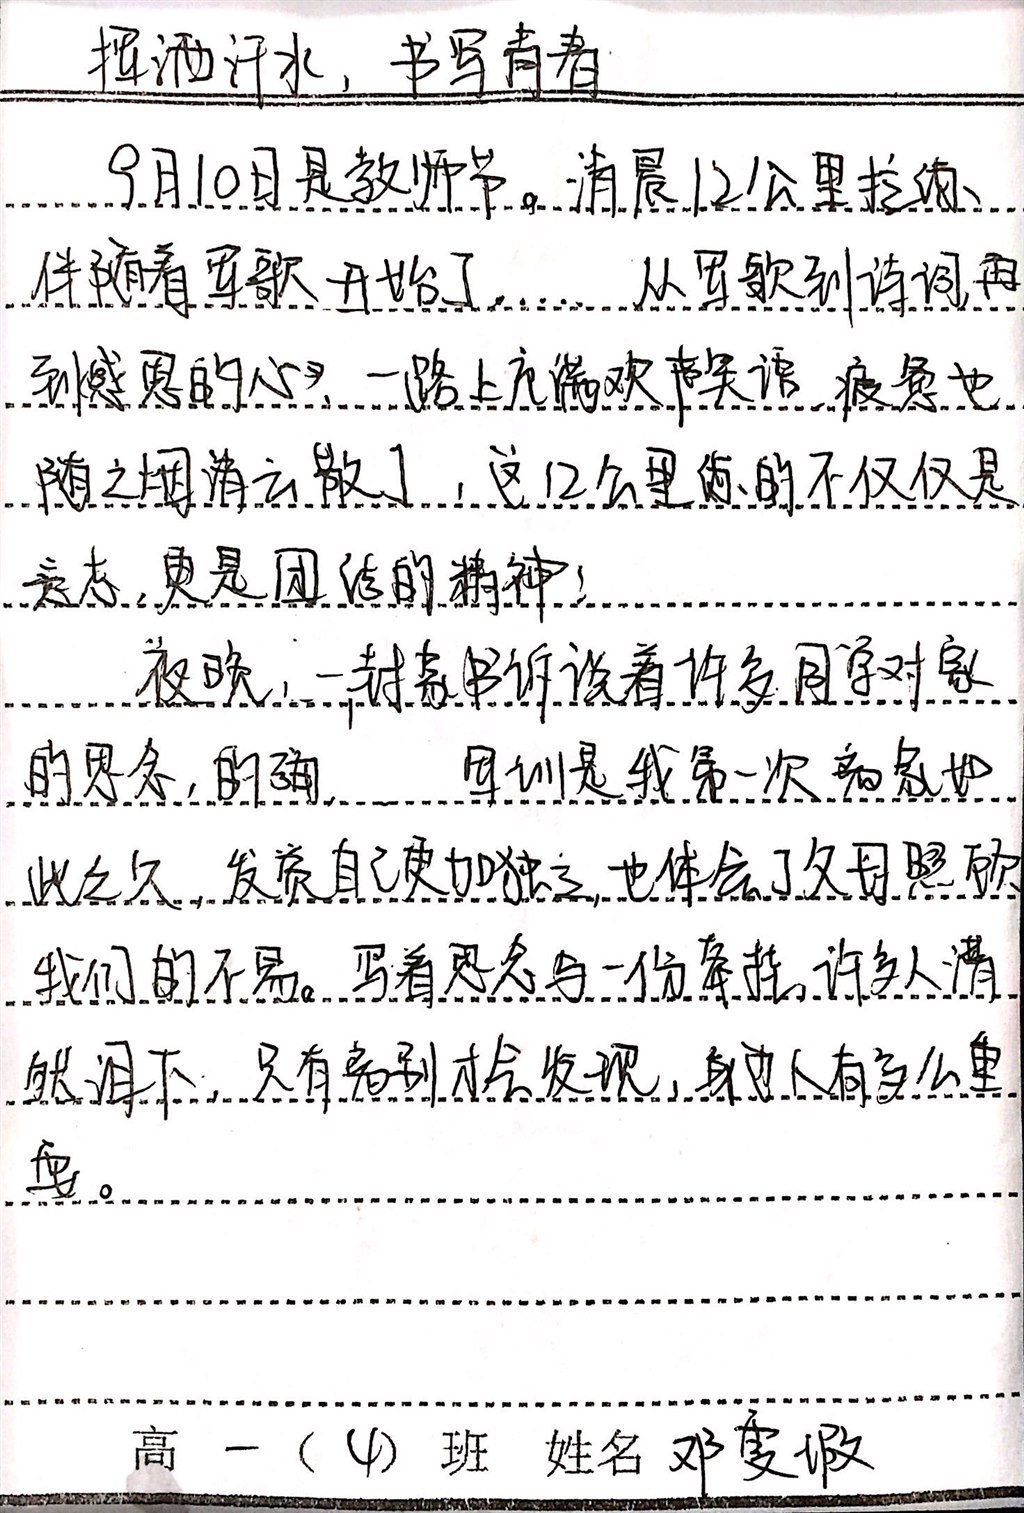 挥洒汗水，书写青春
9月10日是教师节。清晨12公里拉练、
伴随着军歌开始了……从军歌到诗词，再
到感恩的心，一路上充满欢声笑语，疲惫也
随之烟消云散了，这12公里练的不仅仅是
意志，更是团结的精神！
夜晚，一封家书诉说着许多同学对家
的思念，的确，军训是我第一次离家如
此之久，发觉自己更加独立，也体会了父母照顾
我们的不易。写着思念与一份牵挂，许多人潸
然泪下，只有离别才会发现，身边人有多么重
要。
高一（4）班 姓名 邓雯